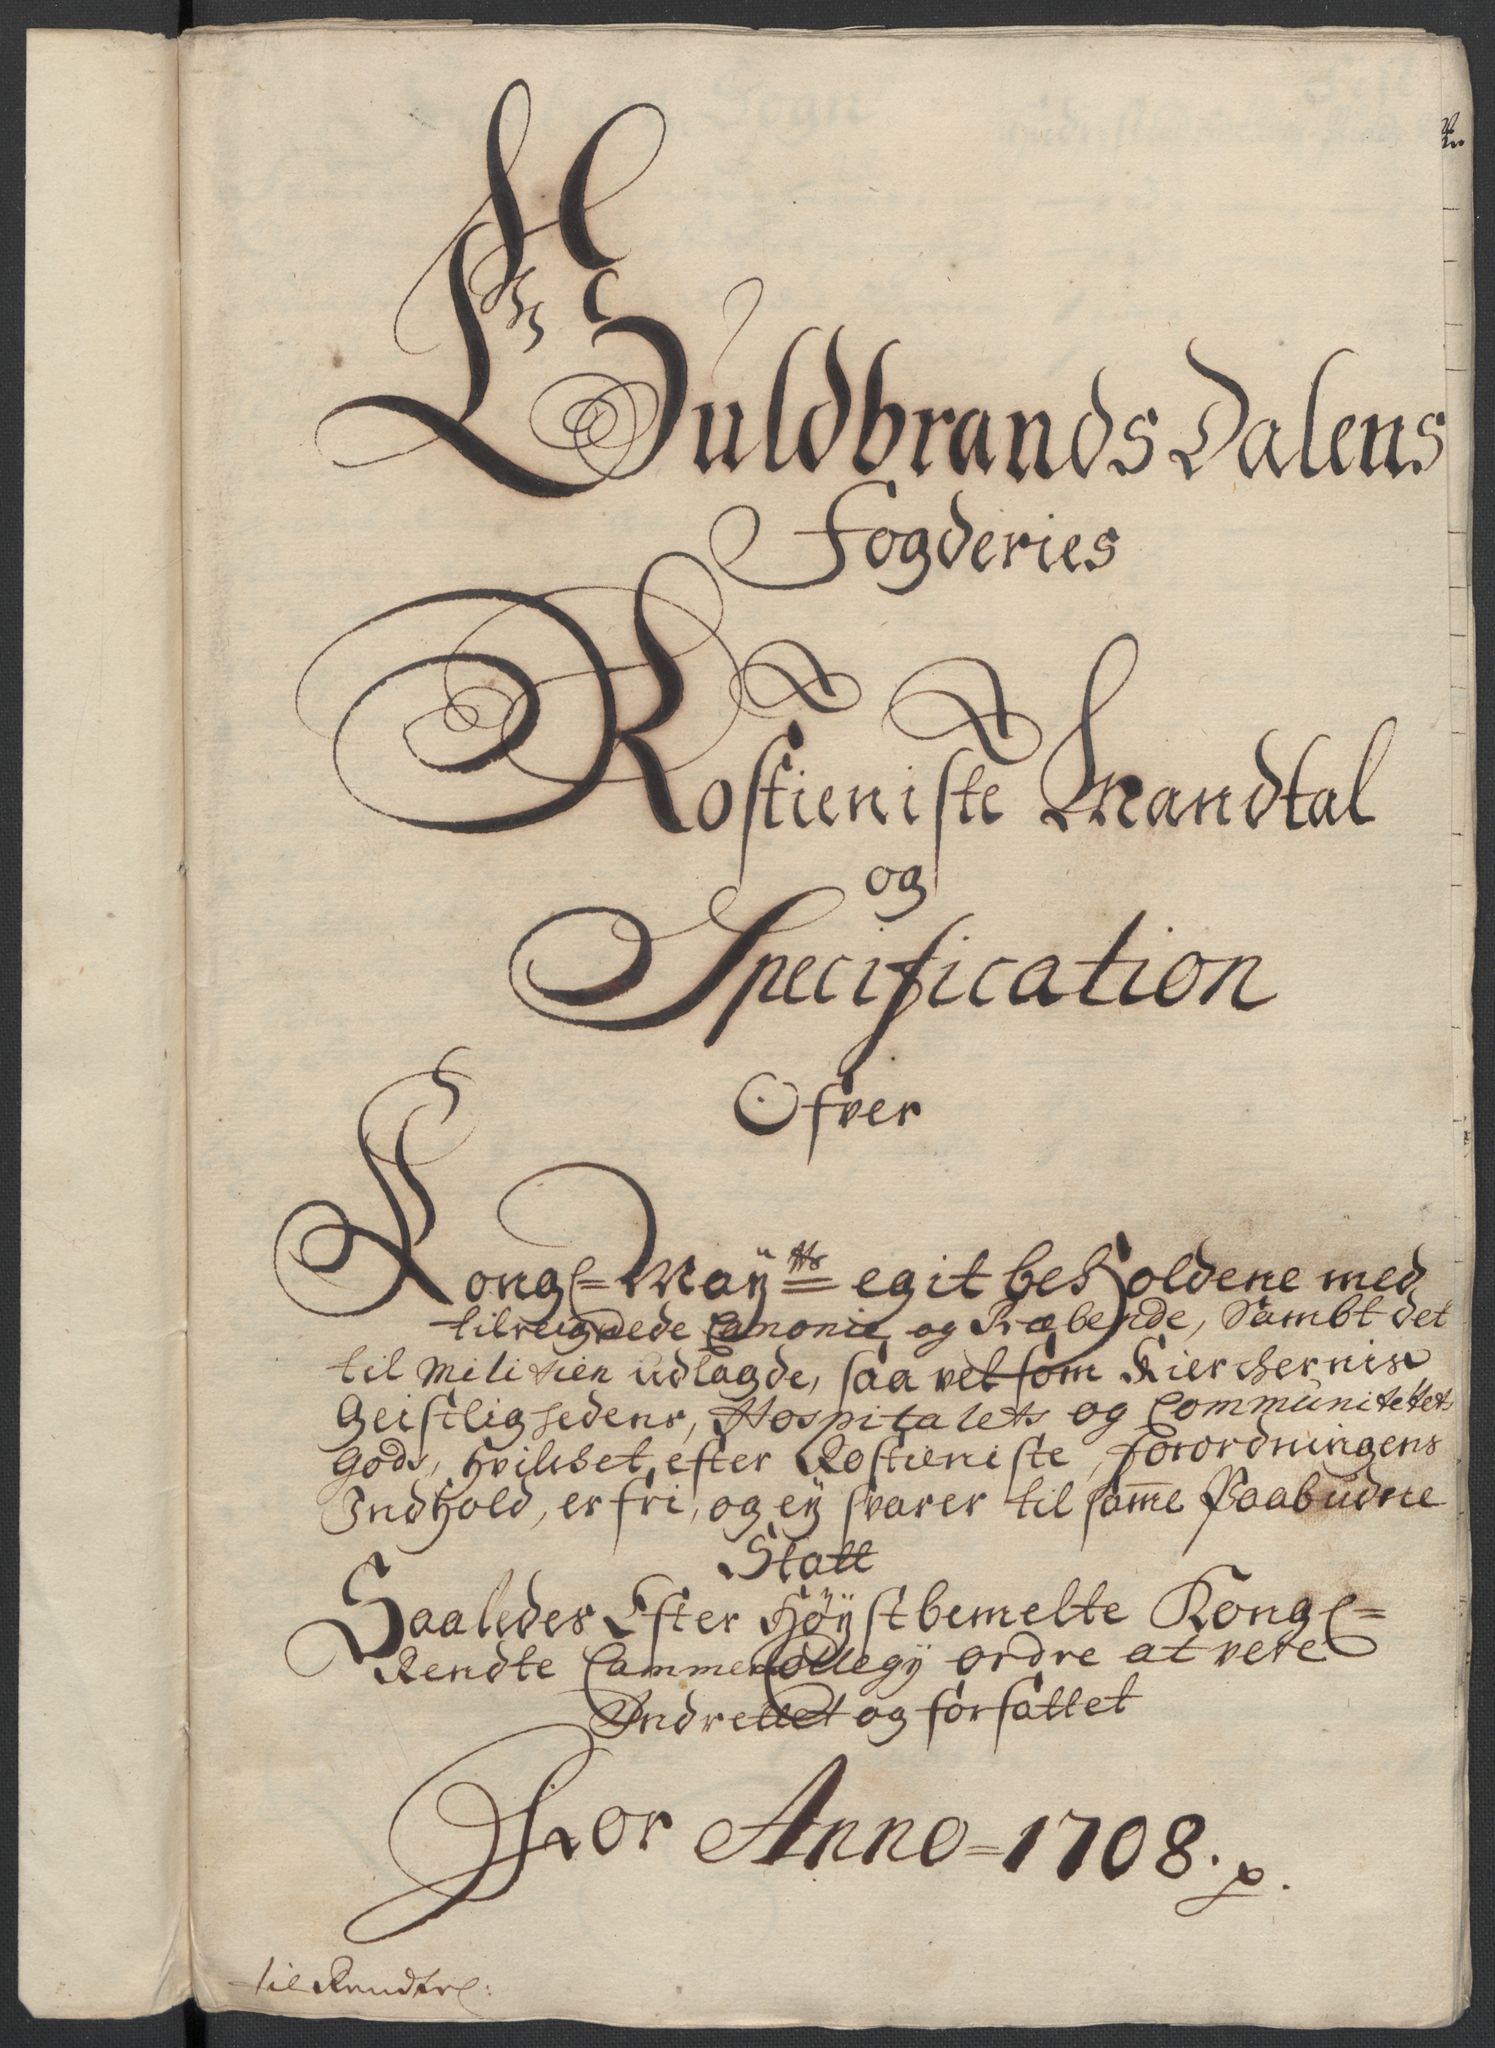 Guldbrands Dalens
Fogderies
Rostieniste Mandtal
og
Specification
Ofver
Kongl= Maÿtts egit beholdene med
tilleignede Canonie og Præbende, Sambt det
til Militien udlagde, saa vel som Kierchernis
Geistlighedens, Hospitalets og Communitetets
Gods, hvilchet efter Rostieniste, forordningens
Indhold, er fri, og eÿ svarer til samme Paabudne
Statt
Saaledes Efter Høÿstbemelte Kongl=
Rendte Cammer Collegÿ ordre at vere
Indrettet og forfattet
For Anno=1708.
til Rendtel: